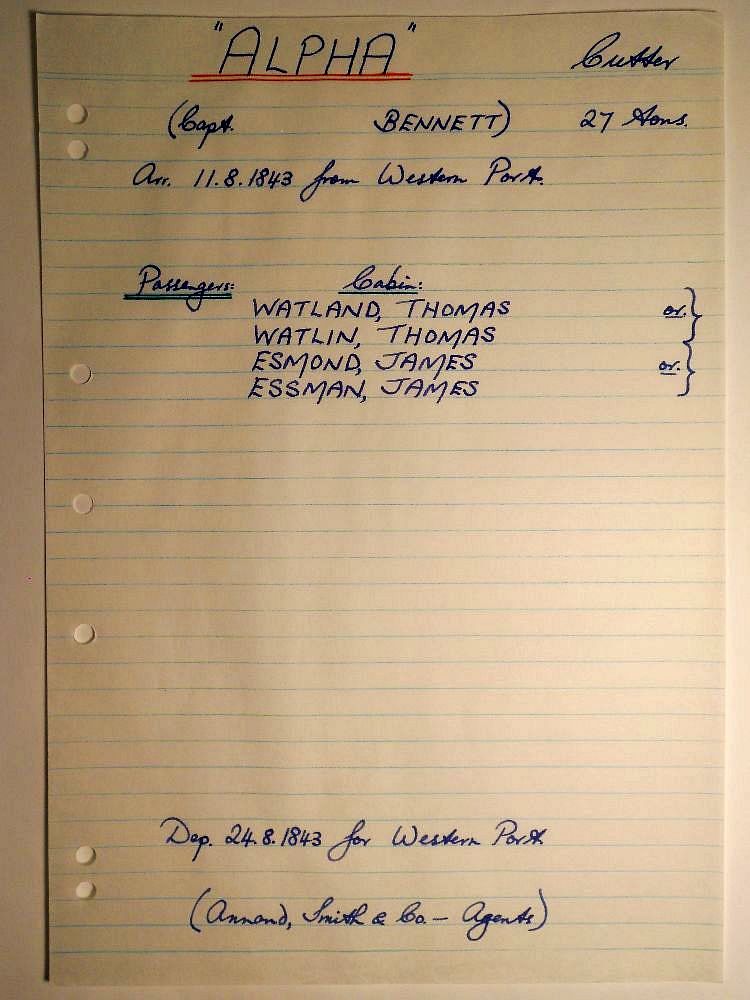 "ALPHA" Cutter
(Capt. BENNETT) 27 tons.
Arr. 11.8.1843 from Western Port.
Passengers: Cabin:
WATLAND, THOMAS or.
WATLIN, THOMAS
ESMOND, JAMES or.
ESSMAN, JAMES
Dep. 24.8.1843 for Western Port
(Annand, Smith & Co. - Agents)